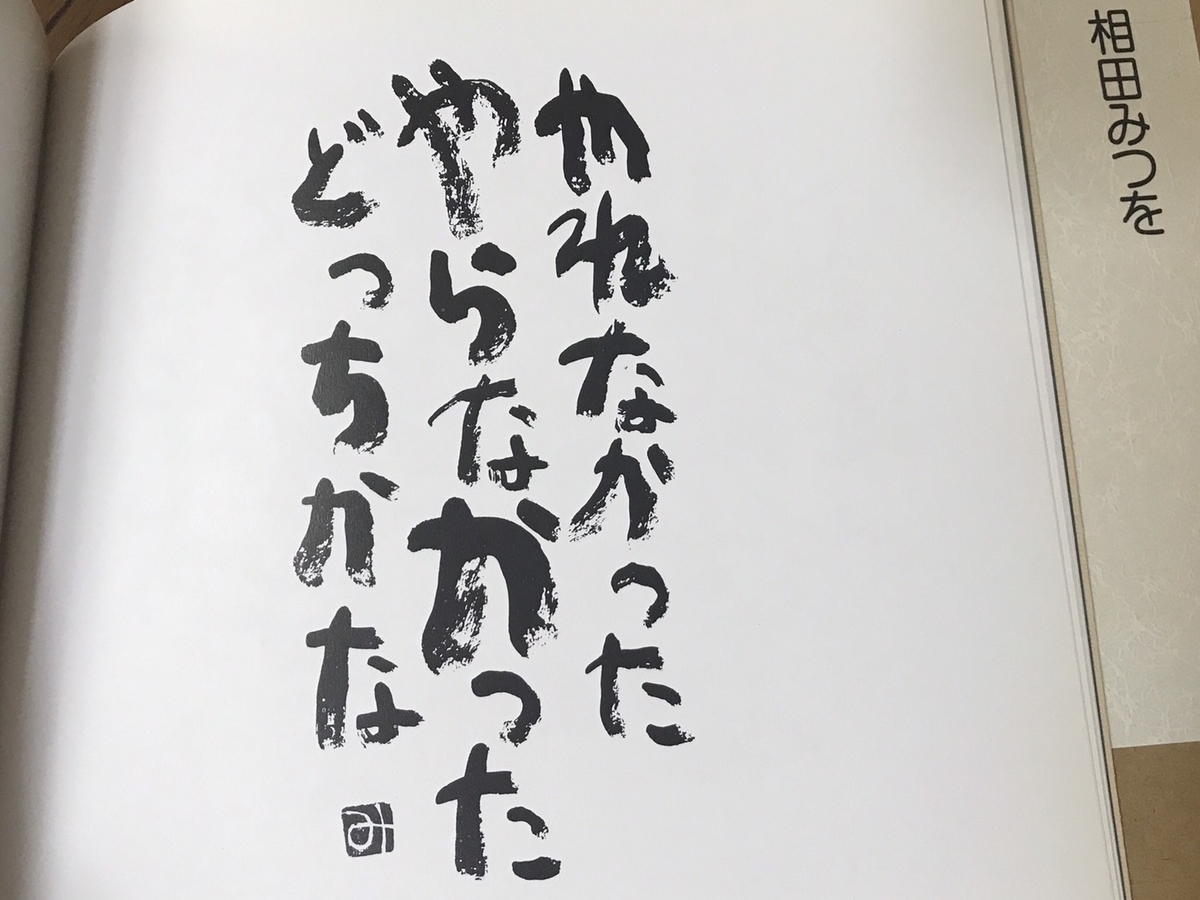 相田みつを
やれなかった
やらなかった
どっちかな
み